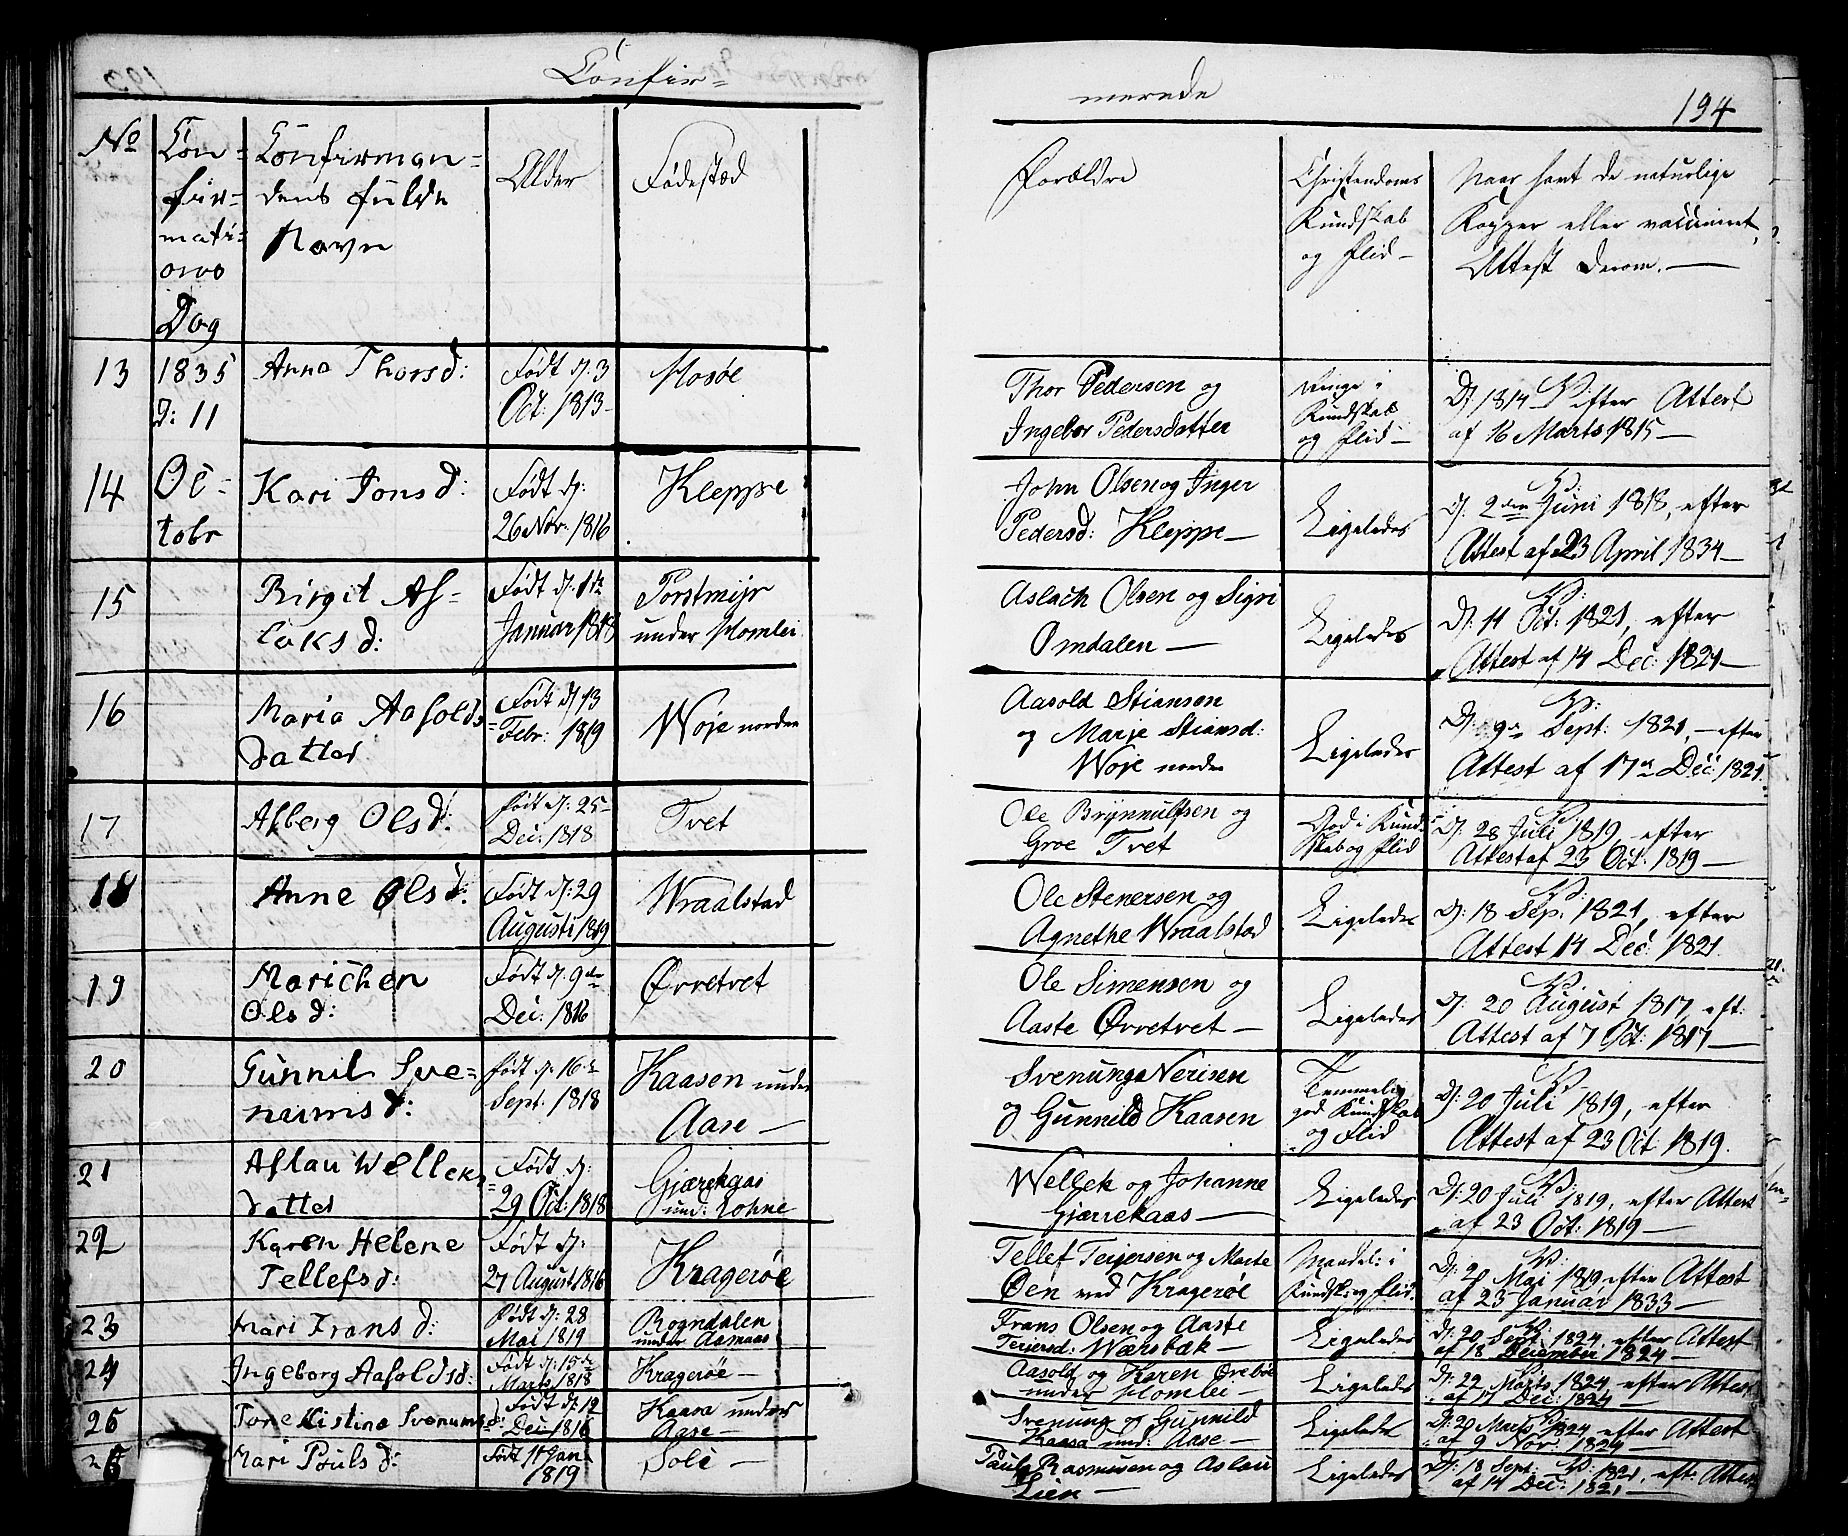 Confir=
merede
194
No
Con=
fir=
mati=
ons
Dag
Confirman=
dens fulde
Navn
Alder
Fødested
Forældre
Christendoms
Kundskab
og flid—
Naar havt de naturlige
Kopper eller vaccineret,
Attest derom.—
13
1835
d: 11
Anna Thorsd:
Født d: 3
Oct: 1813—
Mosøe
Thor Pedersen og
Ingebor Pedersdatter
Ringe i
Kundskab
og flid—
V:
D: 1814 efter Attest
af 16 Marts 1815—
14
Oc=
tobr
Kari Jonsd:
Født d:
26 Nov: 1816
Kleppe
John Olsen og Inger
Pedersd: Kleppe—
Ligeledes
V:
D: 2den Juni 1818, efter
Attest af 23 April 1834—
15
Birgit As=
laksd:
Født d: 1te
Januar 1818
Porstmyr
under Homlei
Aslach Olsen og Sigri
Omdalen—
Ligeledes
V:
D: 11 Oct: 1821, efter
Attest af 14 Dec: 1821—
16
Maria Aasolds=
datter
Født d: 13
Febr: 1819
Woje norden
Aasold Stiansen
og Marje Stiansd:
Woje norden
Ligeledes
V:
D: 9n Sept: 1821,—efter
Attest af 17n Dec: 1821.
17
Asberg Olsd:
født d: 25
Dec: 1818
Tvet
Ole Brynnulfsen og
Groe Tvet
God i Kund=
skab og flid
V:
D: 28 Juli 1819, efter
Attest af 23 Oct: 1819—
18
Anne Olsd:
Født d: 29
Augusti 1819
Wraalstad
Ole Stenersen og
Agnethe Wraalstad
Ligeledes
V:
D: 18 Sep: 1821, efter
Attest 14 Dec: 1821.
19
Marichen
Olsd:
Født d: 9de
Dec: 1816
Øvretvet
Ole Simensen og
Aaste Øvretvet—
Ligeledes
V:
D: 20 August 1817, eft:
Attest af 7 Oct: 1817—
20
Gunnil Sve=
numsd:
født d: 16n
Sept. 1818
Kaasen under
Aase—
Svenung Nerisen
og Gunnild Kaasen
Temmelig
god Kundskab
og Flid
V:
D: 20 Juli 1819, efter
Attest af 23 Oct: 1819.
21
Aslau Welleks=
datter
Født d:
29 Oct: 1818
Gjærekaas
und: Lohne
Wellek og Johanne
Gjerrekaas—
Ligeledes
V:
D: 20 Juli 1819, efter Attest
af 23 Oct: 1819—
22
Karen Helene
Tellefsd:
Født d:
27 August 1816
Kragerøe
Tellef Teijersen og Marte
Øen ved Kragerøe
Maadel: i
Kundsk: og flid.
V:
D: 20 Mai 1819 efter Attest
af 23 Januar 1833—
23
Mari Fransd:
Født d: 28
Mai 1819
Rogndalen
under Aasmaas
Frans Olsen og Aaste
Teijersd: Wærsbæk—
Ligeledes
V:
D: 20 Sept: 1824 efter Attest
af 18 December 1824—
24
Ingeborg Aasoldsd:
Født d: 15de
Marts 1818
Kragerøe—
Aasold og Karen Ørebøe
under Homlei—
Ligeledes
V:
D: 22 Marts 1824 efter Attest
af 17 Dec: 1824—
25
Tone Kistina Svenumsd:
Født d: 12
Dec: 1816
Kaasa under
Aase—
Svenung og Gunnild
Kaasa und: Aase—
Ligeledes
V:
D: 20 Marts 1824 efter Attest
af 9 Nov: 1824—
26
Mari Poulsd:
Født 11 Jan:
1819
Soli—
Paul Rasmusen og Aslau
Lien—
Ligeledes
V:
D: 18 Sept: 1821, eft: Attest
af 14 Dec: 1821—